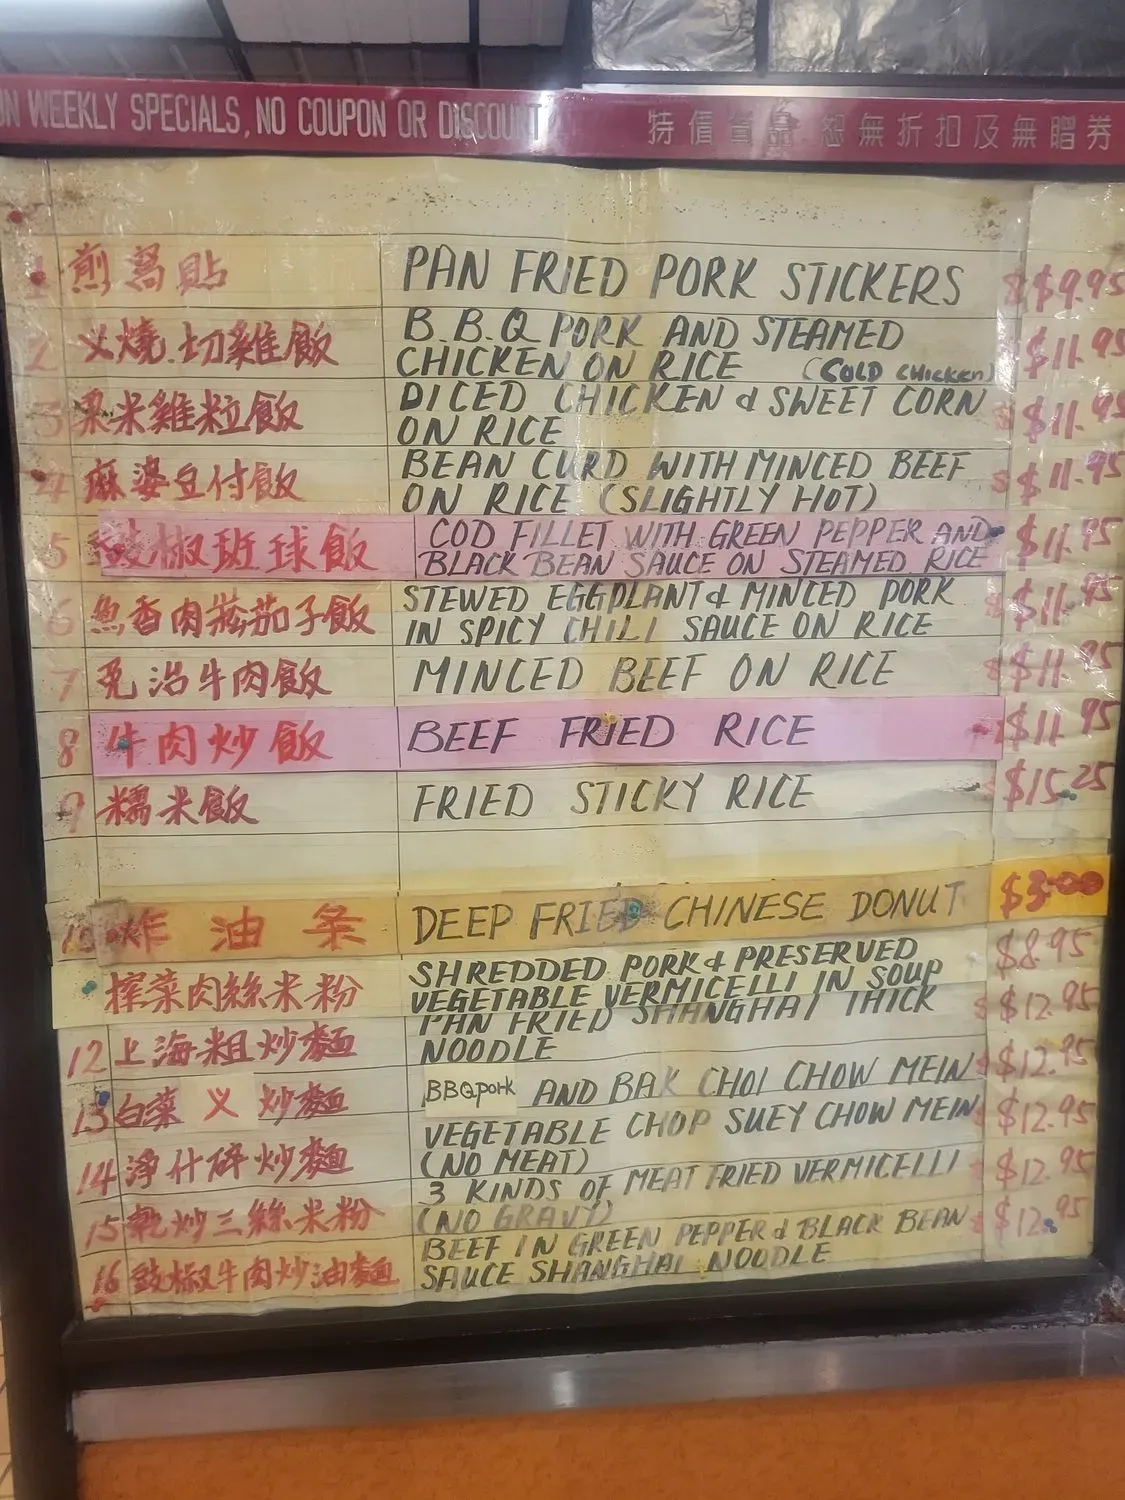 ON WEEKLY SPECIALS, NO COUPON OR DISCOUNT 特價 恕無折扣及無贈券
1 煎窩貼 PAN FRIED PORK STICKERS $9.95
2 义燒.切雞飯 B.B.Q PORK AND STEAMED
CHICKEN ON RICE (COLD CHICKEN) $11.95
3 粟米雞粒飯 DICED CHICKEN & SWEET CORN
ON RICE $11.95
4 麻婆豆付飯 BEAN CURD WITH MINCED BEEF
ON RICE (SLIGHTLY HOT) $11.95
5 豉椒班球飯 COD FILLET WITH GREEN PEPPER AND
BLACK BEAN SAUCE ON STEAMED RICE $11.95
6 魚香肉崧茄子飯 STEWED EGGPLANT & MINCED PORK
IN SPICY CHILI SAUCE ON RICE $11.95
7 免治牛肉飯 MINCED BEEF ON RICE $11.95
8 牛肉炒飯 BEEF FRIED RICE $11.95
9 糯米飯 FRIED STICKY RICE $15.25
10 炸油条 DEEP FRIED CHINESE DONUT $3.00
榨菜肉絲米粉 SHREDDED PORK & PRESERVED
VEGETABLE VERMICELLI IN SOUP $8.95
12 上海粗炒麵 PAN FRIED SHANGHAI THICK
NOODLE $12.95
13 白菜义炒麵 BBQ pork AND BAK CHOI CHOW MEIN $12.95
14 淨什碎炒麵 VEGETABLE CHOP SUEY CHOW MEIN
(NO MEAT) $12.95
15 乾炒三絲米粉 3 KINDS OF MEAT FRIED VERMICELLI
(NO GRAVY) $12.95
16 豉椒牛肉炒油麵 BEEF IN GREEN PEPPER & BLACK BEAN
SAUCE SHANGHAI NOODLE $12.95